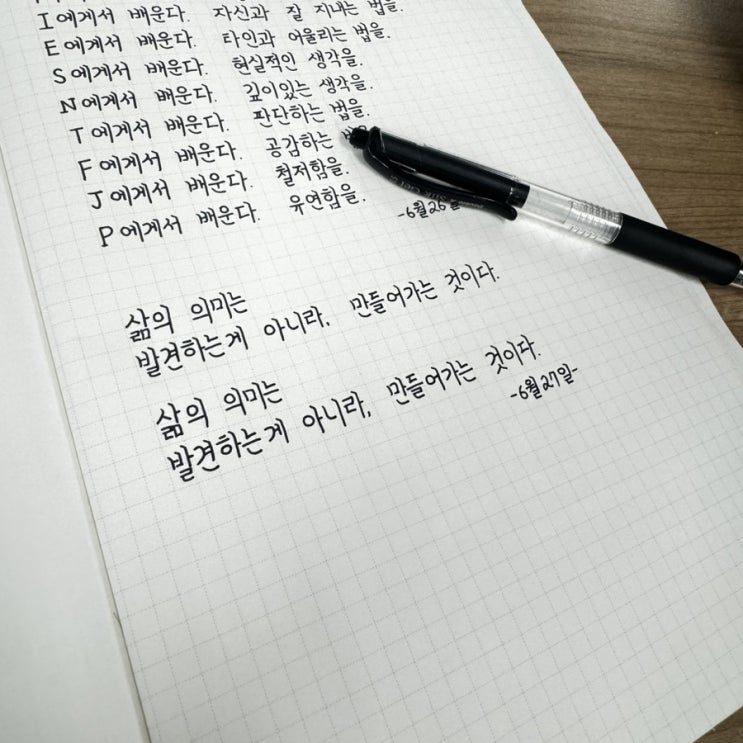 I에게서 배운다. 자신과 잘 지내는 법을.
E에게서 배운다. 타인과 어울리는 법을.
S에게서 배운다. 현실적인 생각을.
N에게서 배운다. 깊이있는 생각을.
T에게서 배운다. 판단하는 법을.
F에게서 배운다. 공감하는
J에게서 배운다. 철저함을.
P에게서 배운다. 유연함을.
-6월26일
삶의 의미는
발견하는게 아니라, 만들어가는 것이다.
삶의 의미는
발견하는게 아니라, 만들어가는 것이다.
-6월27일-